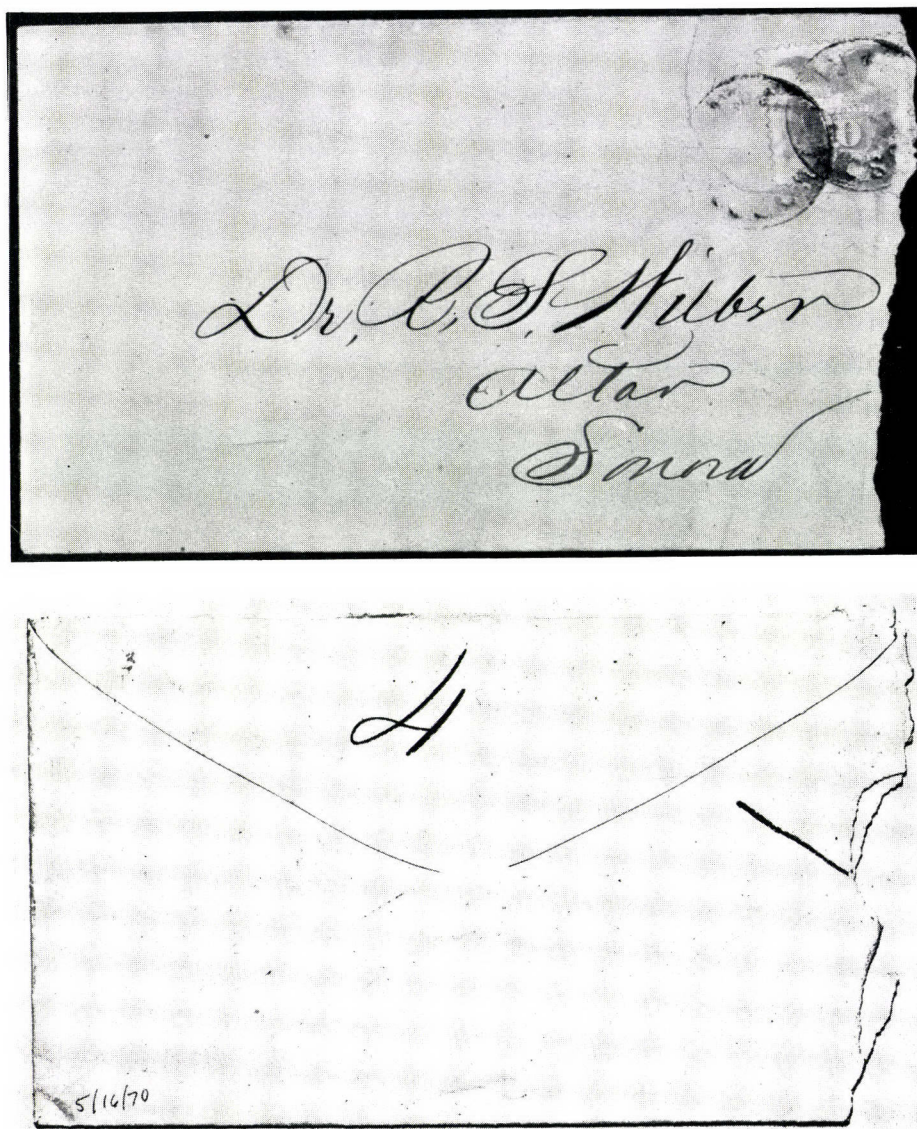 Dr. R. S. Wilbur
Altar
Sonora
4
5/16/70